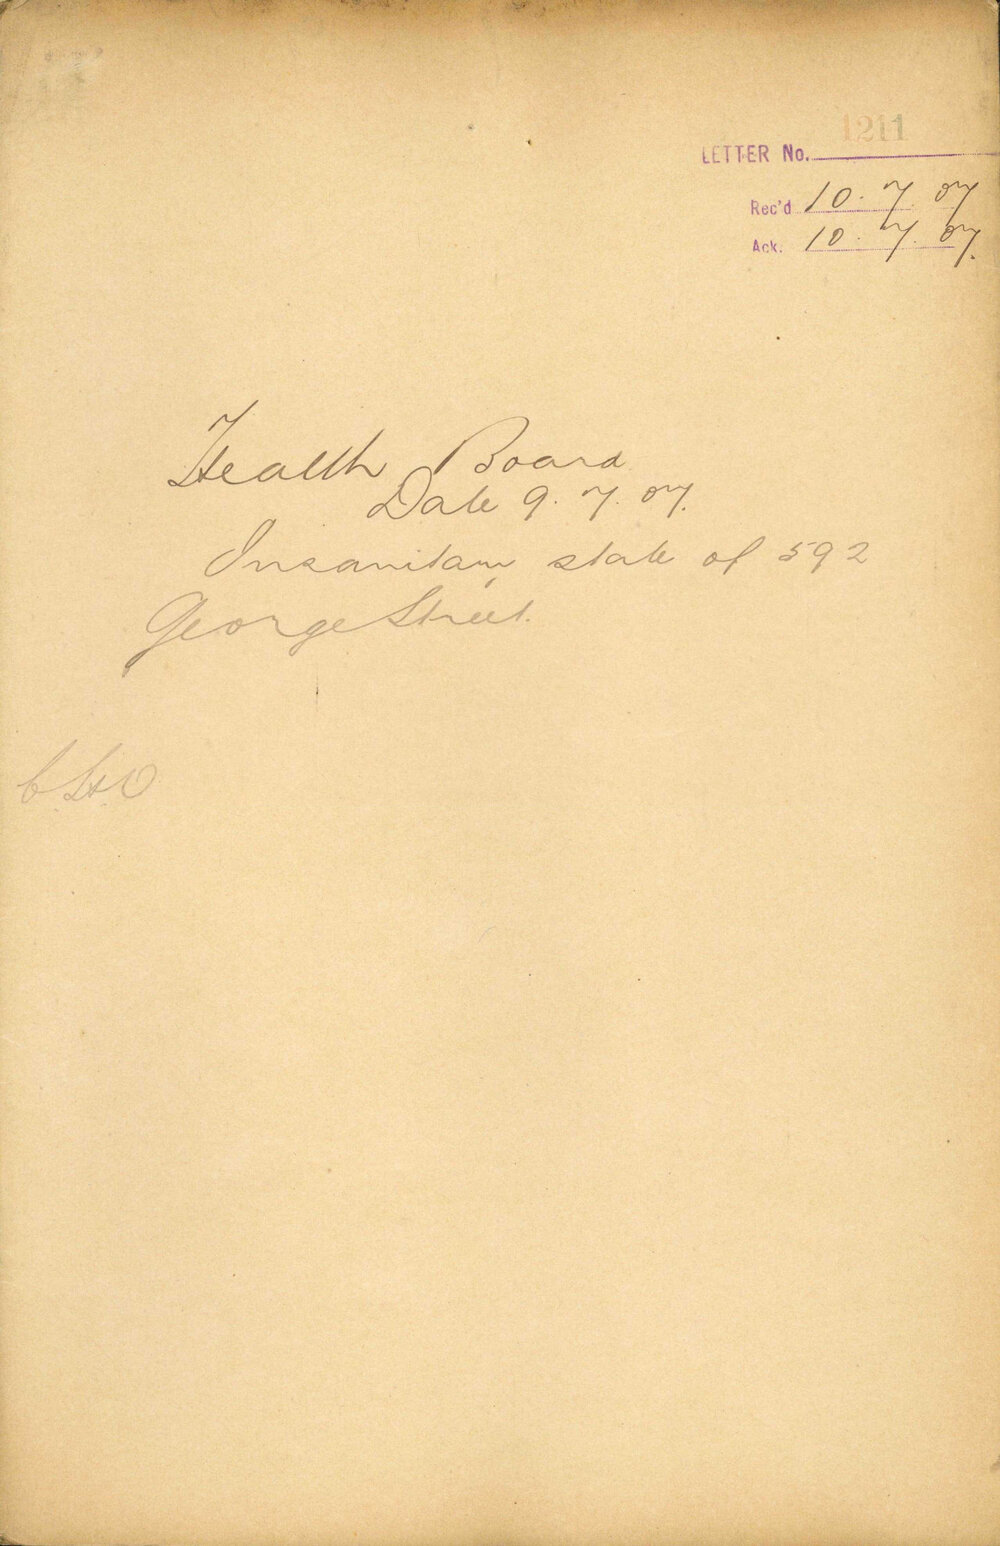 1211
LETTER No.
Rec'd 10. 7. 07
Ack. 10. 7. 07.
Health Board
Date 9. 7. 07.
Insanitary state of 592
George Street.